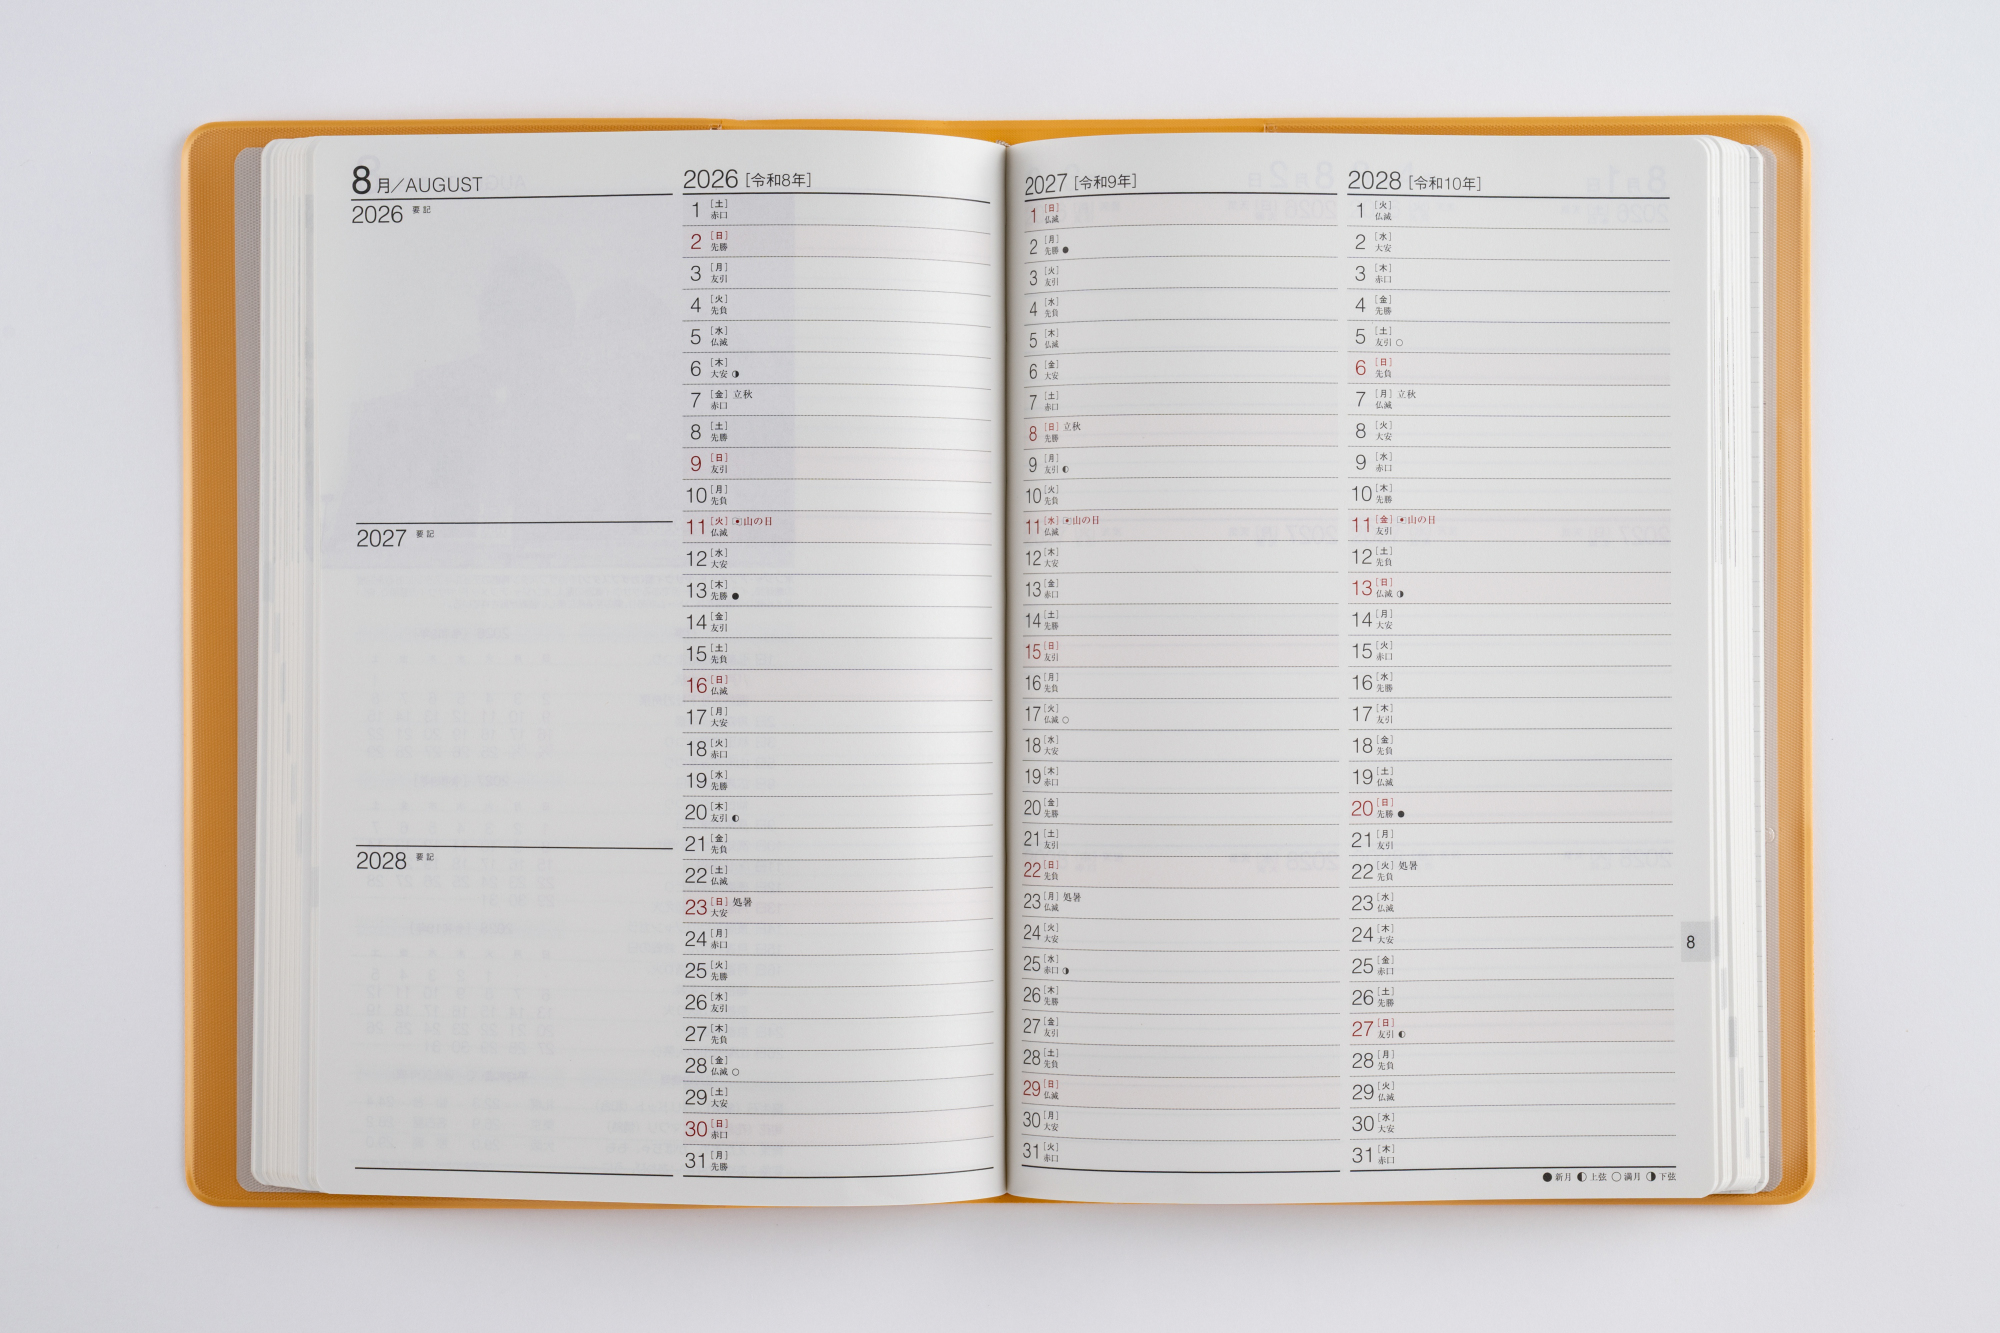 8月/AUGUST
2026 要記
2027 要記
2028 要記
2026 [令和8年]
1 [土] 赤口
2 [日] 先勝
3 [月] 友引
4 [火] 先負
5 [水] 仏滅
6 [木] 大安 ◑
7 [金] 立秋 赤口
8 [土] 先勝
9 [日] 友引
10 [月] 先負
11 [火] 山の日 仏滅
12 [水] 大安
13 [木] 先勝 ●
14 [金] 友引
15 [土] 先負
16 [日] 仏滅
17 [月] 大安
18 [火] 赤口
19 [水] 先勝
20 [木] 友引 ◐
21 [金] 先負
22 [土] 仏滅
23 [日] 処暑 大安
24 [月] 赤口
25 [火] 先勝
26 [水] 友引
27 [木] 先負
28 [金] 仏滅 ○
29 [土] 大安
30 [日] 赤口
31 [月] 先勝
2027 [令和9年]
1 [日] 仏滅
2 [月] 先勝 ●
3 [火] 友引
4 [水] 先負
5 [木] 仏滅
6 [金] 大安
7 [土] 赤口
8 [日] 立秋 先勝
9 [月] 友引 ◐
10 [火] 先負
11 [水] 山の日 仏滅
12 [木] 大安
13 [金] 赤口
14 [土] 先勝
15 [日] 友引
16 [月] 先負
17 [火] 仏滅 ○
18 [水] 大安
19 [木] 赤口
20 [金] 先勝
21 [土] 友引
22 [日] 先負
23 [月] 処暑 仏滅
24 [火] 大安
25 [水] 赤口 ◑
26 [木] 先勝
27 [金] 友引
28 [土] 先負
29 [日] 仏滅
30 [月] 大安
31 [火] 赤口
2028 [令和10年]
1 [火] 仏滅
2 [水] 大安
3 [木] 赤口
4 [金] 先勝
5 [土] 友引 ○
6 [日] 先負
7 [月] 立秋 仏滅
8 [火] 大安
9 [水] 赤口
10 [木] 先勝
11 [金] 山の日 友引
12 [土] 先負
13 [日] 仏滅 ◑
14 [月] 大安
15 [火] 赤口
16 [水] 先勝
17 [木] 友引
18 [金] 先負
19 [土] 仏滅
20 [日] 先勝 ●
21 [月] 友引
22 [火] 処暑 先負
23 [水] 仏滅
24 [木] 大安
25 [金] 赤口
26 [土] 先勝
27 [日] 友引 ◐
28 [月] 先負
29 [火] 仏滅
30 [水] 大安
31 [木] 赤口
●新月 ◐上弦 ○満月 ◑下弦
8